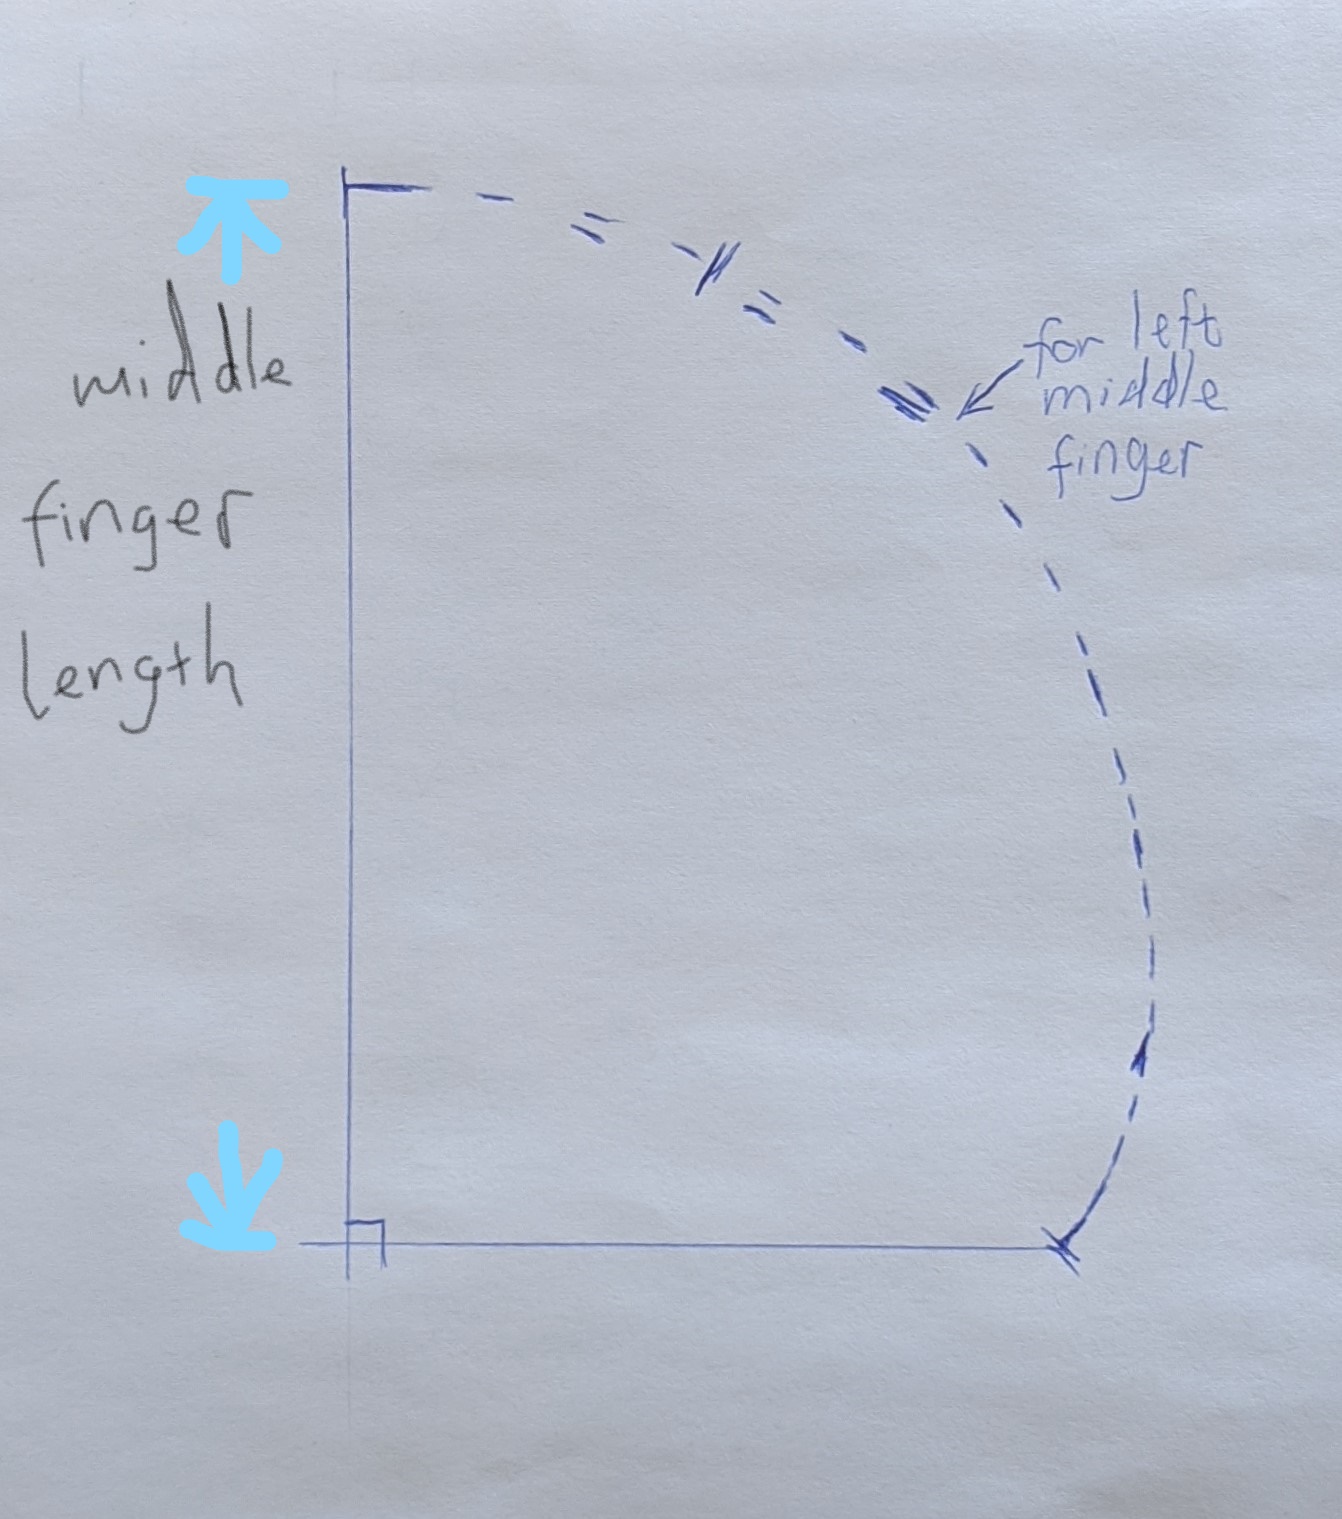 middle
finger
length
for left
middle
finger